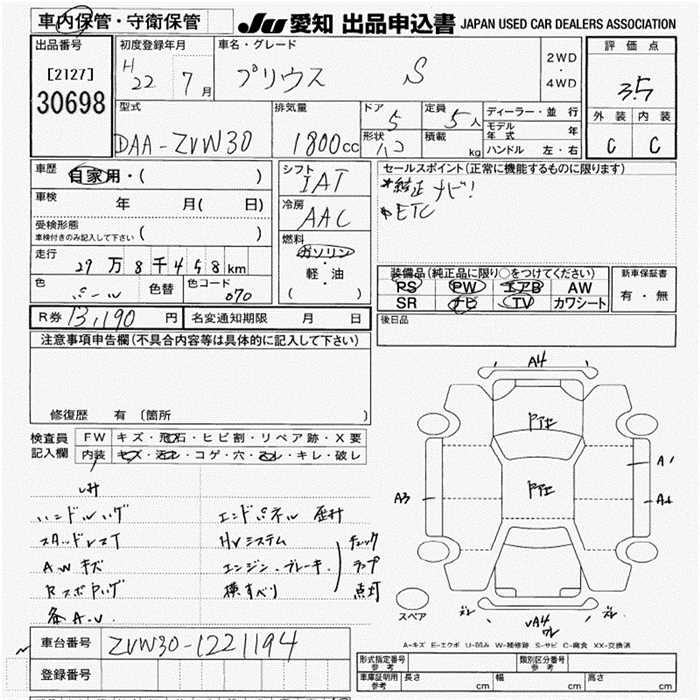 車内保管・守衛保管
JU 愛知 出品申込書 JAPAN USED CAR DEALERS ASSOCIATION
出品番号
[2127]
30698
初度登録年月
H22 7月
車名・グレード
プリウス S
2WD
・
4WD
評価点
3.5
外装 内装
C C
型式
DAA-ZVW30
排気量
1800cc
ドア
5
形状
ハコ
定員
5人
積載
kg
ディーラー・並行
モデル年式 年
ハンドル 左・右
車歴
自家用・( )
車検
年 月( 日)
受検形態
車検付きのみ記入して下さい ( )
走行
27万8千458km
色
パール
色替
色コード
070
シフト
IAT
冷房
AAC
燃料
ガソリン
・
軽・油
( )
セールスポイント(正常に機能するものに限ります)
*純正ナビ!
*ETC
装備品(純正品に限り○をつけてください)
PS PW エアB AW
SR ナビ TV カワシート
新車保証書
有・無
後日品
R券 13,190 円
名変通知期限 月 日
注意事項申告欄(不具合内容等は具体的に記入して下さい)
修復歴 有 〔箇所 〕
検査員
記入欄
FW キズ・飛石・ヒビ割・リペア跡・X要
内装 キズ・汚レ・コゲ・穴・スレ・キレ・破レ
ハンドルハゲ
AWキズ
エンドパネル
HVシステム
エンジン・ブレーキ・
横すべり
チェック
ランプ
点灯
A4
A3
A1
A4
スペア
A-キズ E-エクボ U-凹み W-補修跡 S-サビ C-腐食 XX-交換済
車台番号
ZVW30-1221194
登録番号
形式指定番号
参考
類別区分番号
参考
車庫証明用
参考
長さ cm 幅 cm 高さ cm